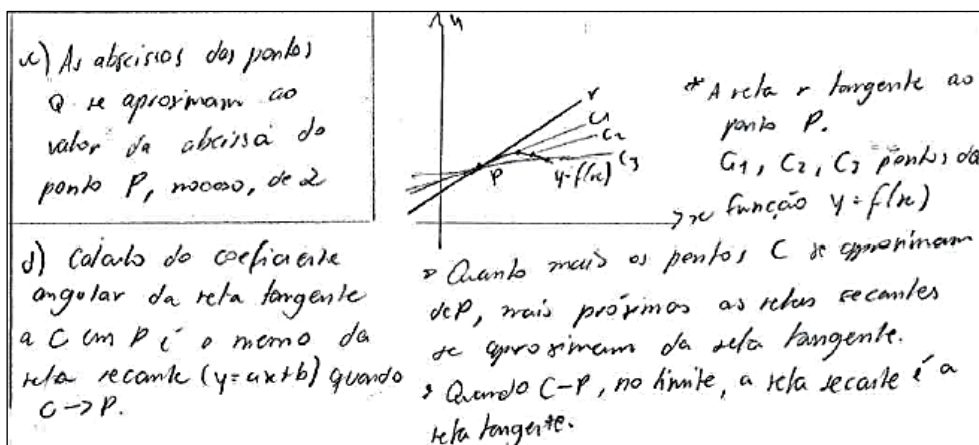 c) As abscissas dos pontos
Q se aproximam ao
valor da abcissa do
ponto P, nocaso, de 2
d) Cálculo do coeficiente
angular da reta tangente
a C em P é o mesmo da
reta secante (y=ax+b) quando
C->P.
y
r
C1
C2
C3
P
y=f(x)
x
* A reta r tangente ao
ponto P.
C1, C2, C3 pontos da
função y=f(x)
> Quanto mais os pontos C se aproximam
de P, mais próximas as retas secantes
se aproximam da reta tangente.
> Quando C-P, no limite, a reta secante é a
reta tangente.